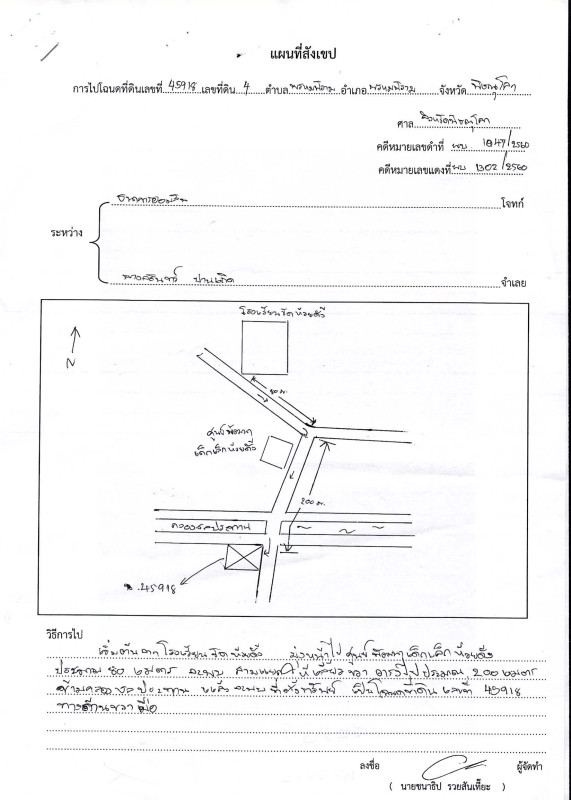 แผนที่สังเขป
การไปโฉนดที่ดินเลขที่ 45918 เลขที่ดิน 4 ตำบล พรหมพิราม อำเภอ พรหมพิราม จังหวัด พิษณุโลก
ศาล จังหวัดพิษณุโลก
คดีหมายเลขดำที่ ผบ 1847/2560
คดีหมายเลขแดงที่ ผบ 1302/2560
ธนาคารออมสิน โจทก์
ระหว่าง
ปานเกิด จำเลย
โรงเรียนวัดห้วยดั้ง
N
80 ม.
ศูนย์พัฒนา
เด็กเล็กห้วยดั้ง
200 ม.
คลองชลประทาน
45918
วิธีการไป
เริ่มต้นจากโรงเรียนวัดห้วยดั้ง มุ่งหน้าไปศูนย์พัฒนาเด็กเล็กห้วยดั้ง
ประมาณ 80 เมตร จะพบ สามแยก ให้เลี้ยวขวา ตรงไปประมาณ 200 เมตร
ข้ามคลองชลประทาน แล้วจะพบที่ตั้งทรัพย์ เป็นโฉนดที่ดินเลขที่ 45918
ทางด้านขวามือ
ลงชื่อ ผู้จัดทำ
( นายชนาธิป รวยสันเทียะ )